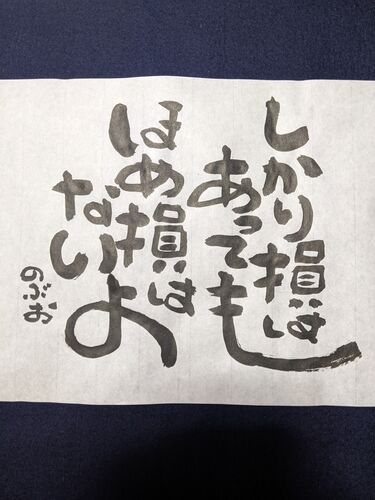 しかり損は
あっても
ほめ損は
ないよ
のぶお